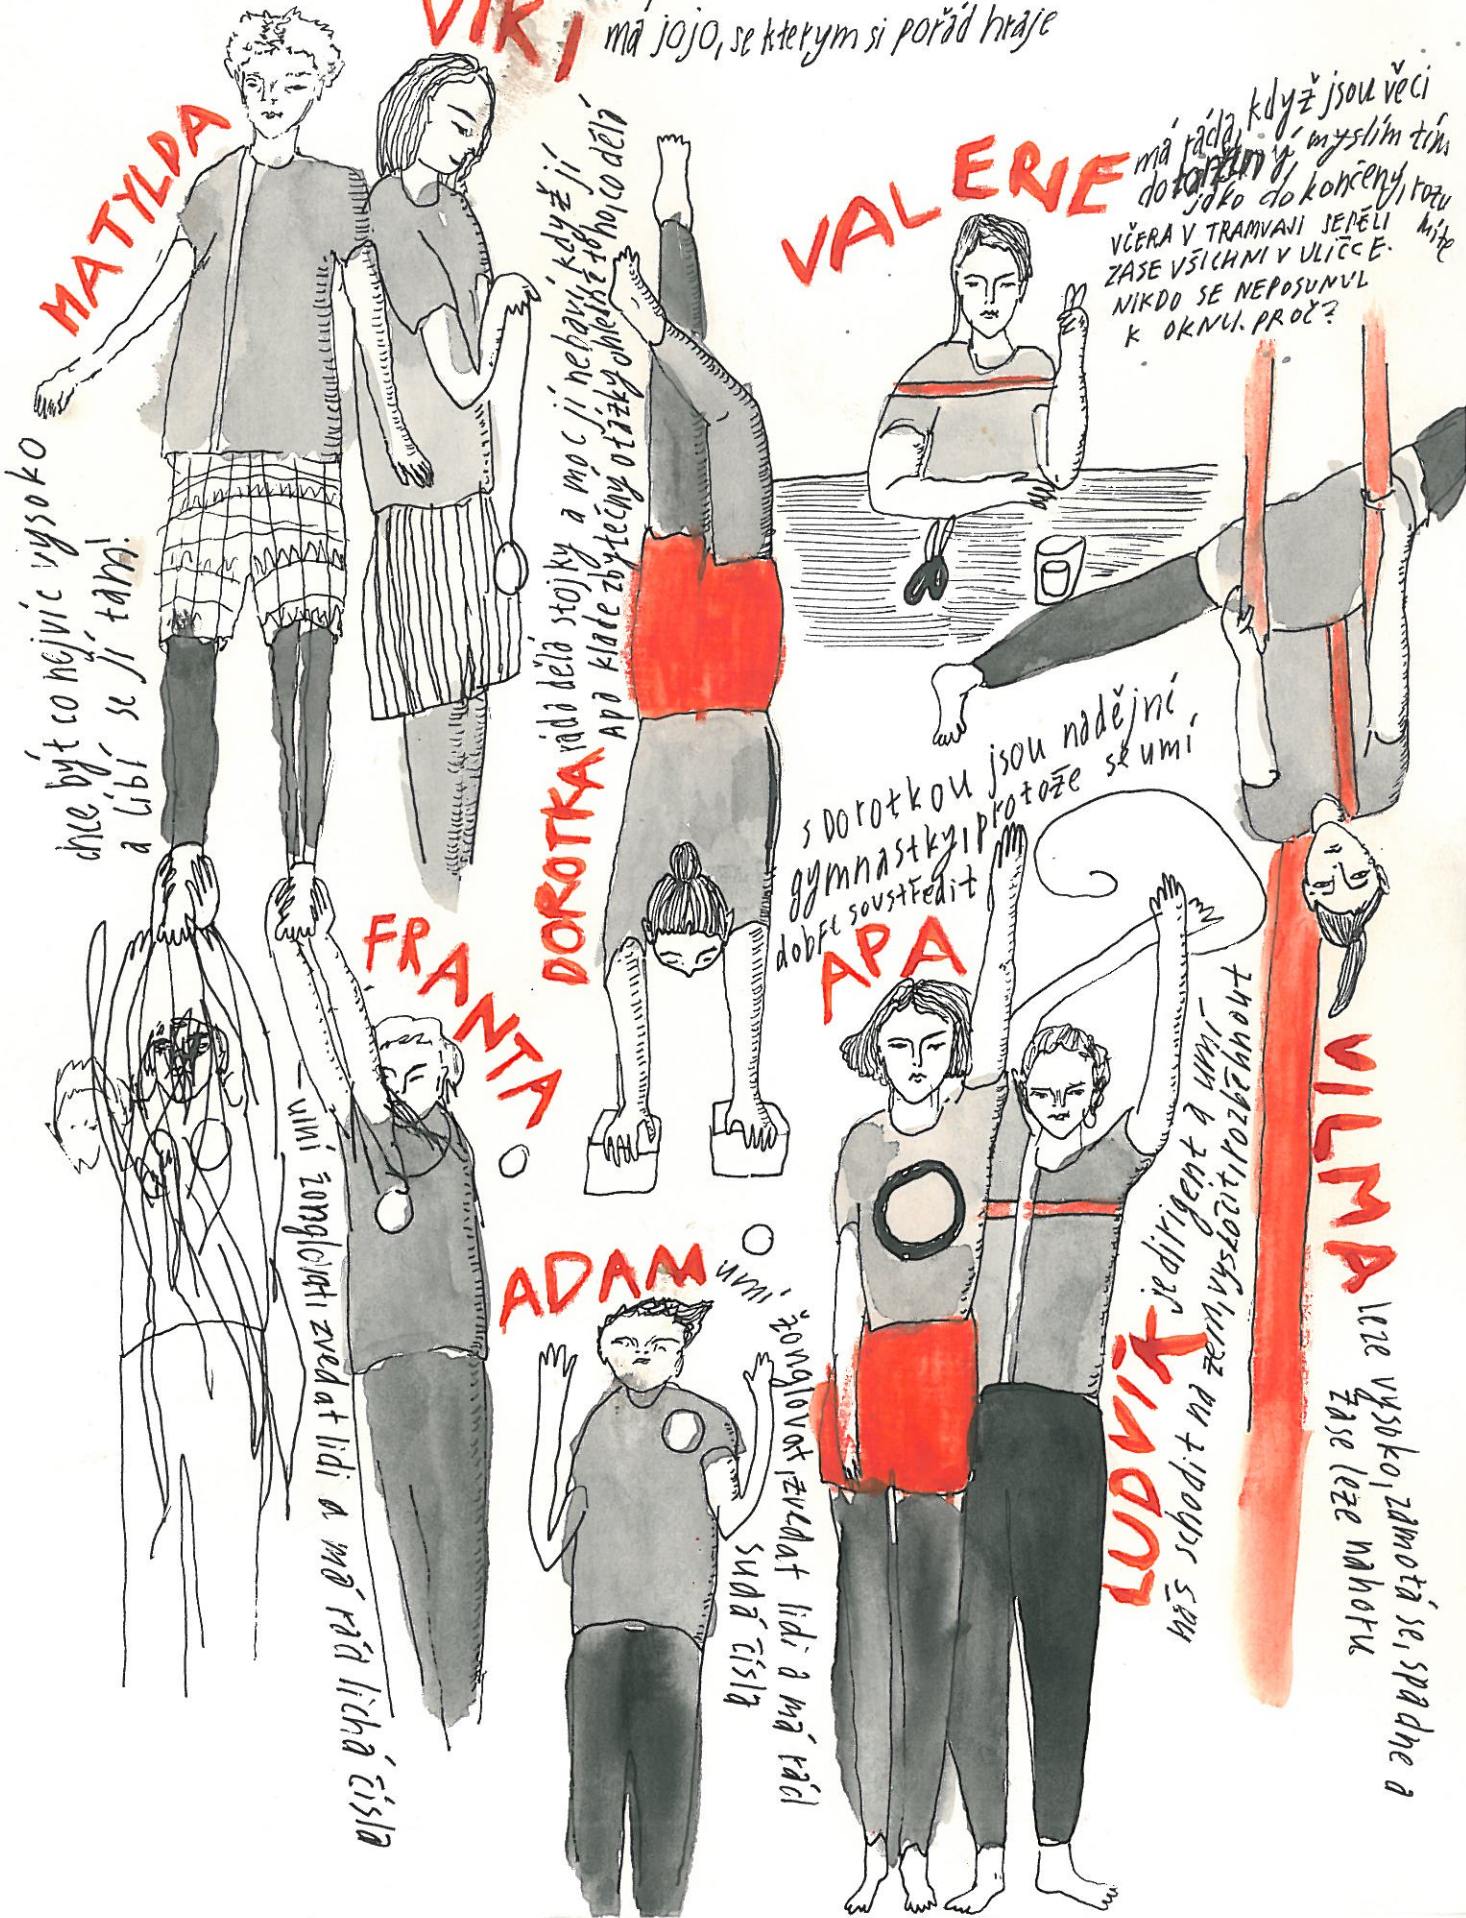 VIKI
má jojo, se kterym si pořád hraje
MATYLDA
chce být co nejvíc vysoko
a líbí se jí tam!
DOROTKA
ráda dělá stojky a moc jí nebaví, když jí
Apa klade zbytečný otázky ohledně toho, co dělá
VALERIE
má ráda, když jsou věci
myslím tím
jako dokončený, rozu
míte
VČERA V TRAMVAJI SEDĚLI
ZASE VŠICHNI V ULIČCE.
NIKDO SE NEPOSUNUL
K OKNU. PROČ?
FRANTA
– umí žonglovat, zvedat lidi a má rád lichá čísla
s Dorotkou jsou nadějní
gymnastky, protože se umí
dobře soustředit
APA
ADAM
umí žonglovat, zvedat lidi a má rád
sudá čísla
LUDVÍK
je dirigent a umí
nás schodit na zem, vyskočit, rozběhnout
VILMA
leze vysoko, zamotá se, spadne a
zase leze nahoru